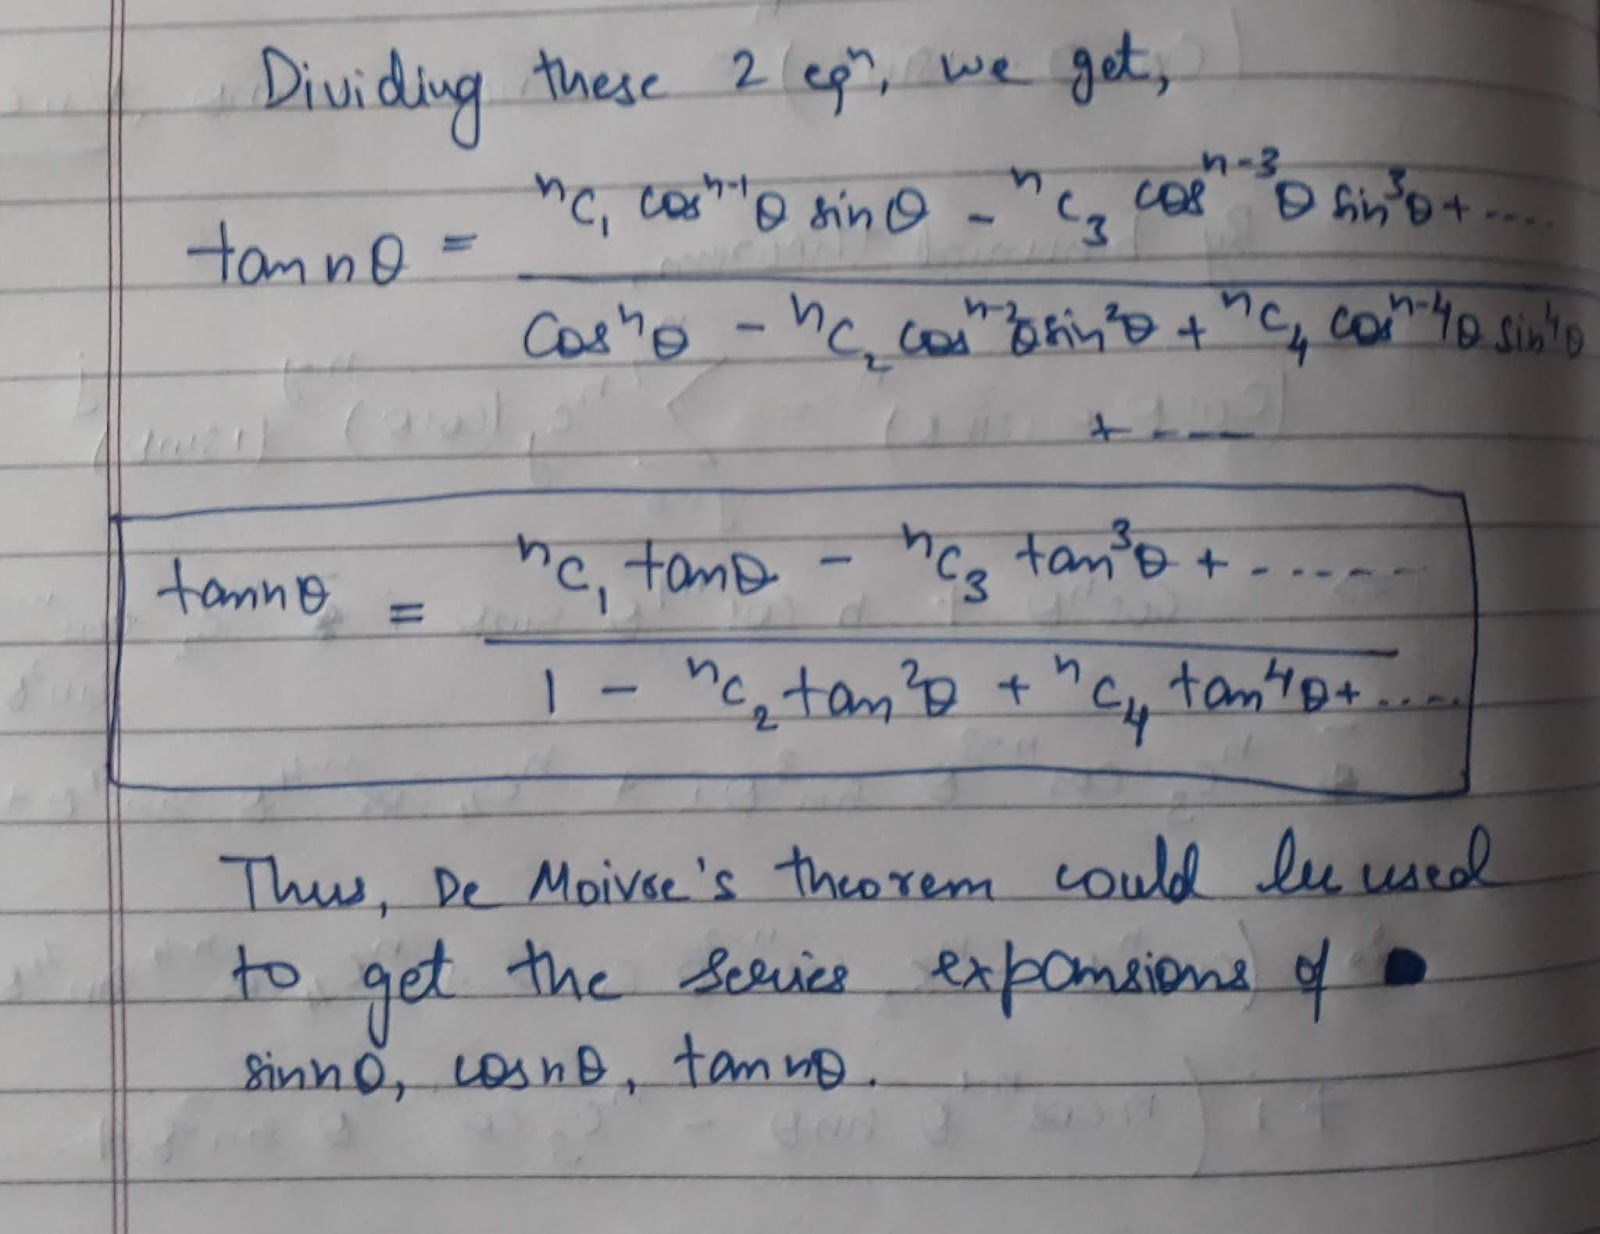 Dividing these 2 eqⁿ, we get,
tan nθ = (ⁿC₁ cosⁿ⁻¹θ sinθ - ⁿC₃ cosⁿ⁻³θ sin³θ + ....) / (Cosⁿθ - ⁿC₂ cosⁿ⁻²θ sin²θ + ⁿC₄ cosⁿ⁻⁴θ sin⁴θ
+ ----)
tan nθ = (ⁿC₁ tanθ - ⁿC₃ tan³θ + ......) / (1 - ⁿC₂ tan²θ + ⁿC₄ tan⁴θ + .....)
Thus, De Moivre's theorem could be used
to get the series expansions of
sin nθ, cos nθ, tan nθ.